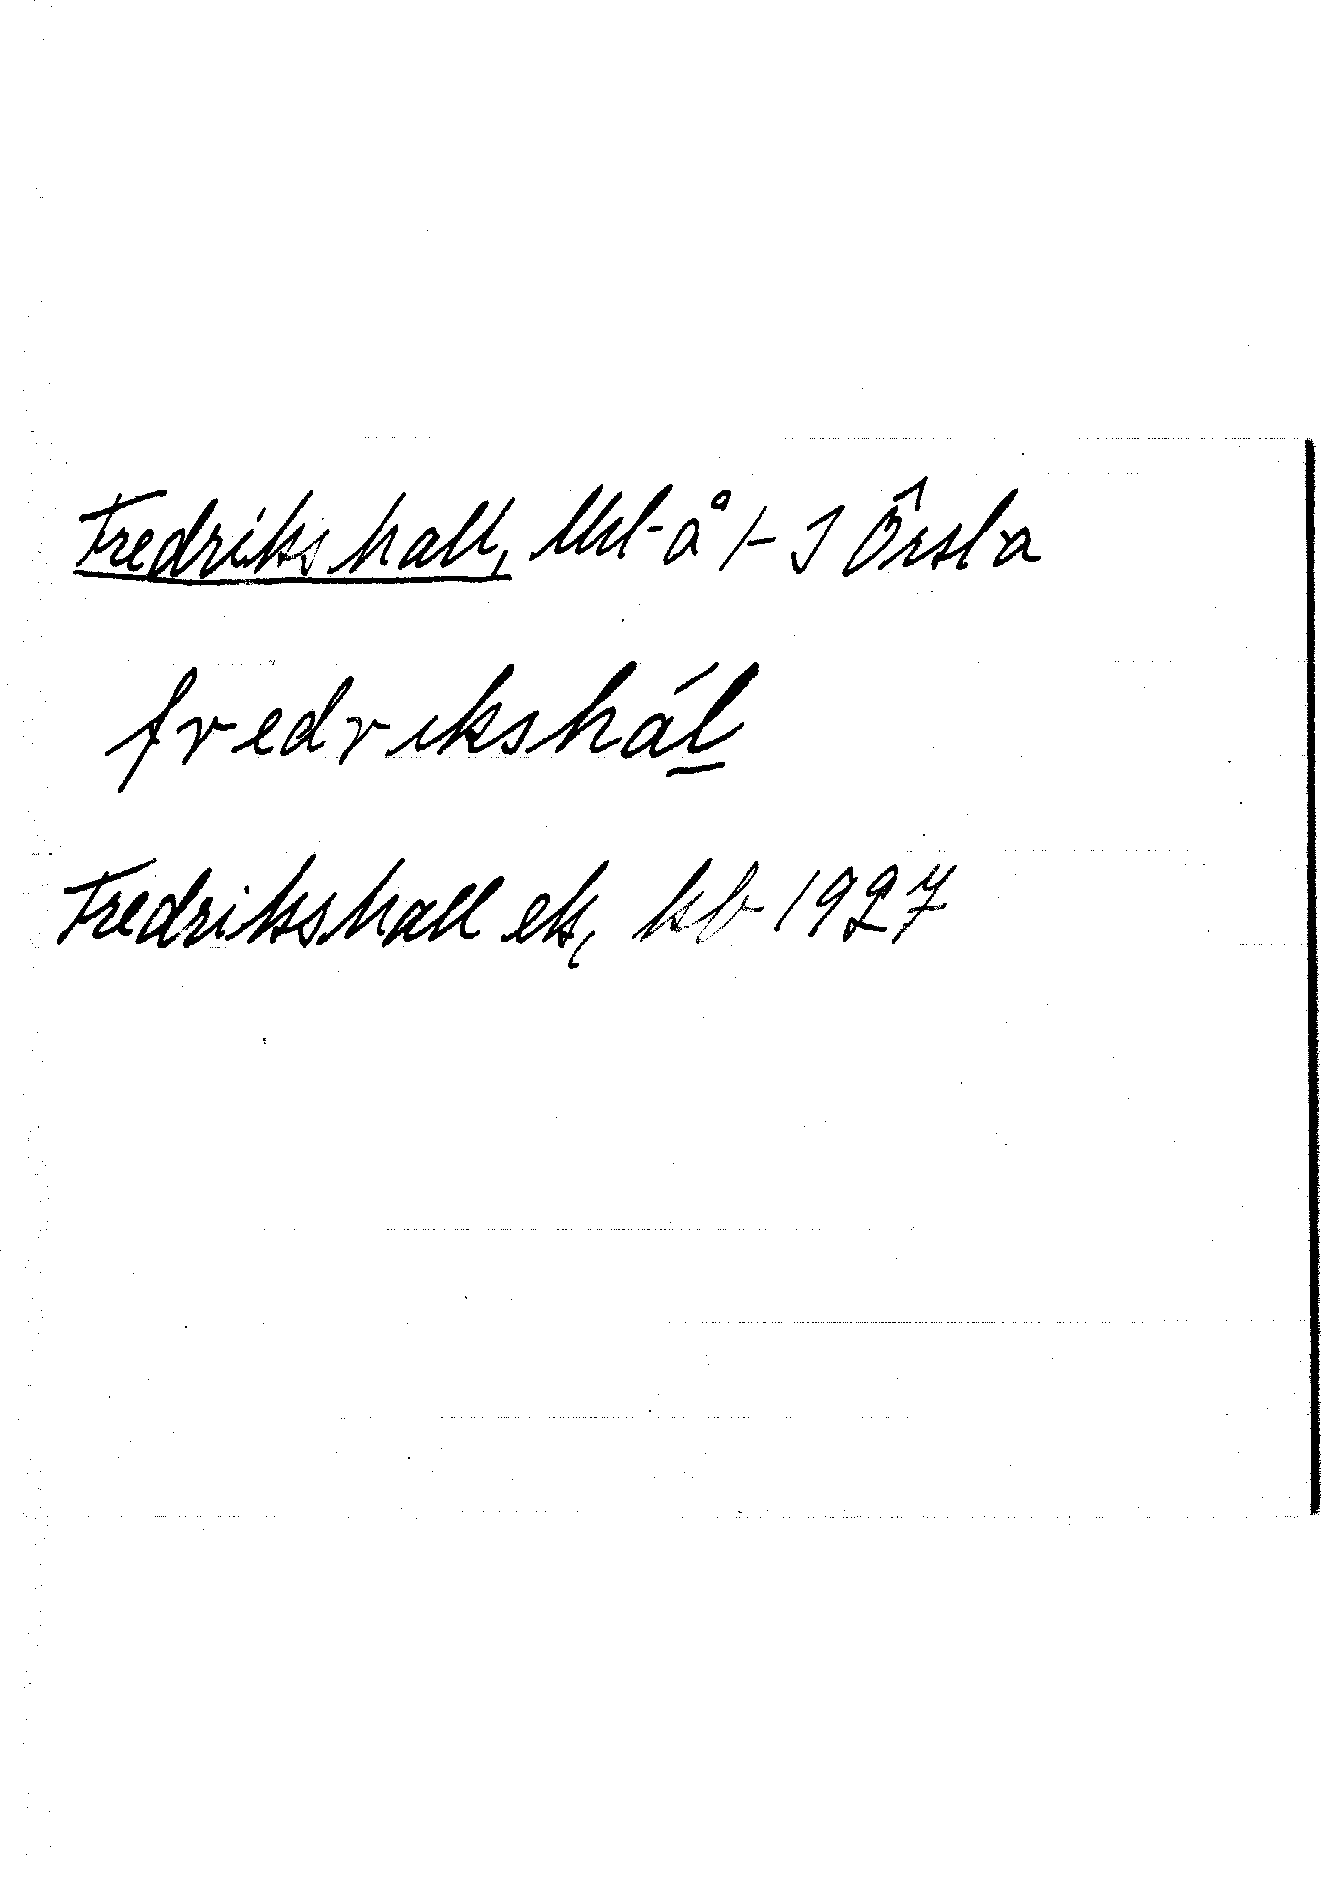 Fredrikshall, Uhl-å 1- I Örsl-a
fredrikshál
Fredrikshall ek, kb 1927